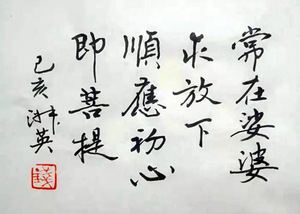 常在娑婆
求放下
順應初心
即菩提
己亥 沐英
錢